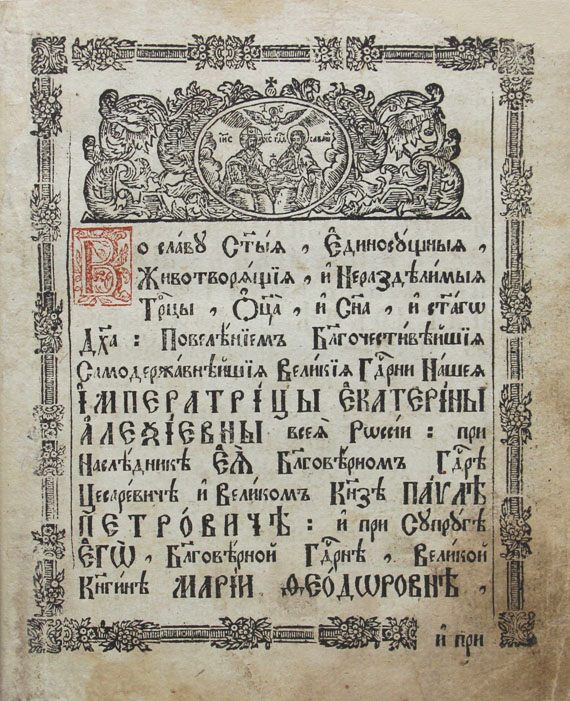 Во славу Ст҃ыѧ , Є҆диносꙋщныѧ ,
Животворѧщїѧ , и҆ Нераздѣлимыѧ
Трⷪ҇цы , Ѻ҆ц҃а̀ , и҆ Сн҃а , и҆ ст҃а́гѡ
Дх҃а : Повелѣ́нїемъ Бл҃гочестивѣйшїѧ
Самодержа́внѣйшїѧ Вели́кїѧ Гдⷭ҇рни На́шеѧ
І҆МПЕРАТРІ́ЦЫ Є҆КАТЕРІ́НЫ
А҆ЛЕѮІ́ЕВНЫ всеѧ̀ Рѡссі́и : при
Наслѣ́дникѣ Є҆Ѧ̀ Бл҃говѣ́рномъ Гдⷭ҇рѣ
Цесаревичѣ и҆ Вели́комъ Кн҃зѣ ПА́ѴЛѢ
ПЕТРО́ВИЧѢ : и҆ при Сꙋпрꙋгѣ
Є҆ГѠ̀ , Бл҃говѣ́рной Гдⷭ҇рнѣ , Вели́кой
Кн҃ги́нѣ МАРІ́И Ѳ҆ЕО́ДѠРОВНѢ ,
и҆ при